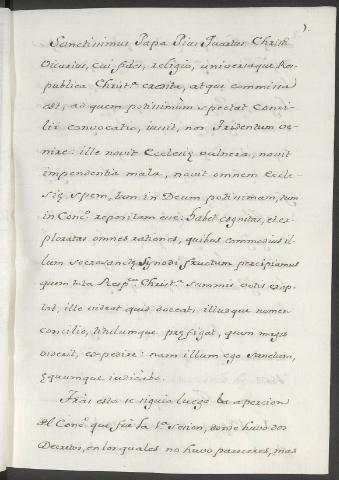 Sanctissimus Papa Pius Quartus Christi
Vicarius, cui fides, religio, universaque Res-
publica Christ.ª credita, atque commissa
est, ad quem potissimum spectat Conci-
lii convocatio, iussit, nos Tridentum ve-
nire: ille novit Ecclesiæ vulnera, novit
impendentia mala, novit omnem Eccle-
siæ spem, tum in Deum potissimam, tum
in Conc.º repositam esse: habet cognitas, et ex-
ploratas omnes rationes, quibus commodius il-
lum sacrosanctæ Synodi fructum percipiamus
quem tota Resp.ca Christ.ª summis votis exop-
tat, ille videat quid doceat, illudque nomen
Concilio, titulumque præfigat, quem magis
viderit, expedire: nam illum ego sanctum,
æquumque iudicabo.
Tràs esto se siguio luego la apercion
del Conc.º que fue la 1.ª sesion, donde huvo dos
Decretos, en los quales no huvo pareceres, mas